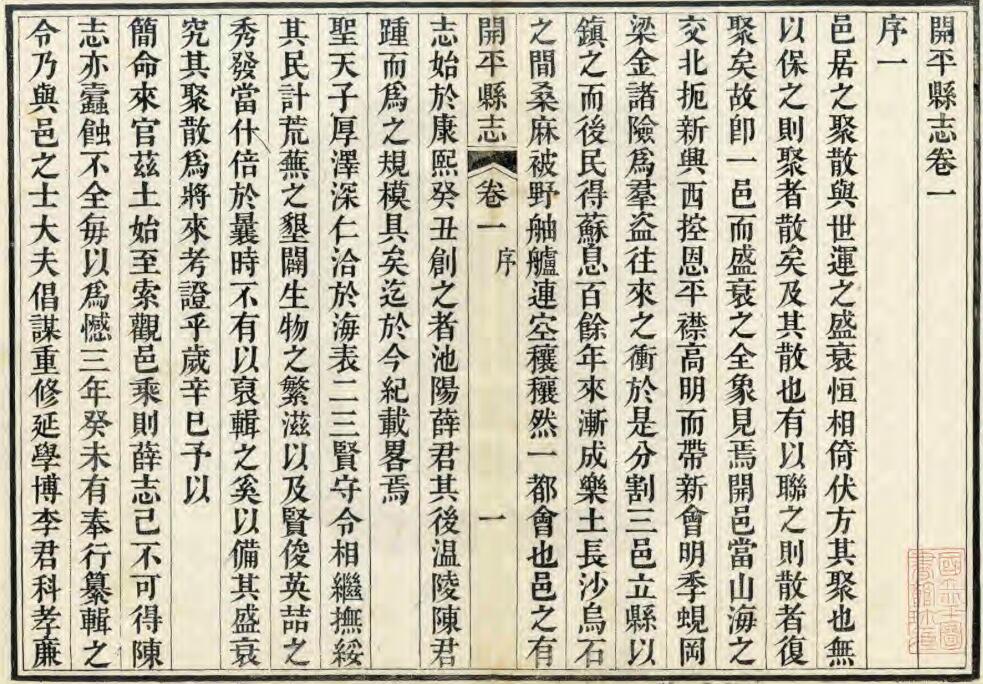 開平縣志卷一
序一
邑居之聚散與世運之盛衰恒相倚伏方其聚也無
以保之則聚者散矣及其散也有以聯之則散者復
聚矣故卽一邑而盛衰之全象見焉開邑當山海之
交北扼新興西控恩平襟高明而帶新會明季蜆岡
梁金諸險爲羣盜往來之衝於是分割三邑立縣以
鎮之而後民得蘇息百餘年來漸成樂土長沙烏石
之間桑麻被野舳艫連空穰穰然一都會也邑之有
開平縣志 卷一 序 一
志始於康熙癸丑創之者池陽薛君其後温陵陳君
踵而爲之規模具矣迄於今紀載畧焉
聖天子厚澤深仁洽於海表二三賢守令相繼撫綏
其民計荒蕪之墾闢生物之繁滋以及賢俊英喆之
秀發當什倍於曩時不有以裒輯之奚以備其盛衰
究其聚散爲將來考證乎歲辛巳予以
簡命來官茲土始至索觀邑乘則薛志已不可得陳
志亦蠹蝕不全每以爲憾三年癸未有奉行纂輯之
令乃與邑之士大夫倡謀重修延學博李君科孝廉